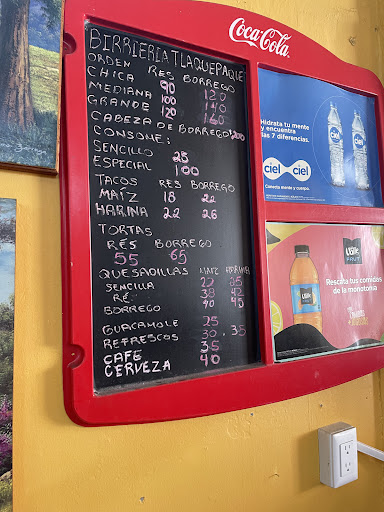 BIRRIERIA TLAQUEPAQUE
ORDEN RES BORREGO
CHICA 90 120
MEDIANA 100 140
GRANDE 120 160
CABEZA DE BORREGO 1,200
CONSOME:
SENCILLO 25
ESPECIAL 100
TACOS RES BORREGO
MAÍZ 18 22
HARINA 22 26
TORTAS
RES BORREGO
55 65
QUESADILLAS MAIZ HARINA
SENCILLA 22 25
RE. 38 42
BORREGO 40 45
GUACAMOLE 25
REFRESCOS 30 . 35
CAFE 35
CERVEZA 40
Coca-Cola
Hidrata tu mente
y encuentra
las 7 diferencias.
ciel ciel
Conecta mente y cuerpo.
ciel ciel
FRUT
Rescata tus comidas
de la monotonía